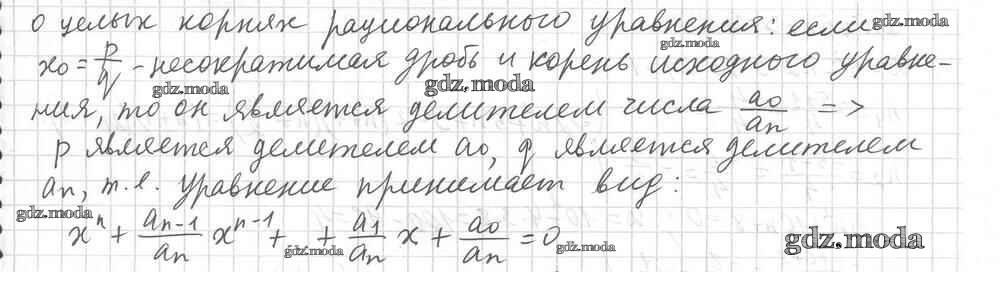 о целых корнях рационального уравнения: если
x₀ = p/q - несократимая дробь и корень исходного уравне-
ния, то он является делителем числа a₀/aₙ =>
p является делителем a₀, q является делителем
aₙ, т.е. уравнение принимает вид:
xⁿ + aₙ₋₁/aₙ xⁿ⁻¹ + ... + a₁/aₙ x + a₀/aₙ = 0
gdz.moda
gdz.moda
gdz.moda
gdz.moda
gdz.moda
gdz.moda
gdz.moda
gdz.moda